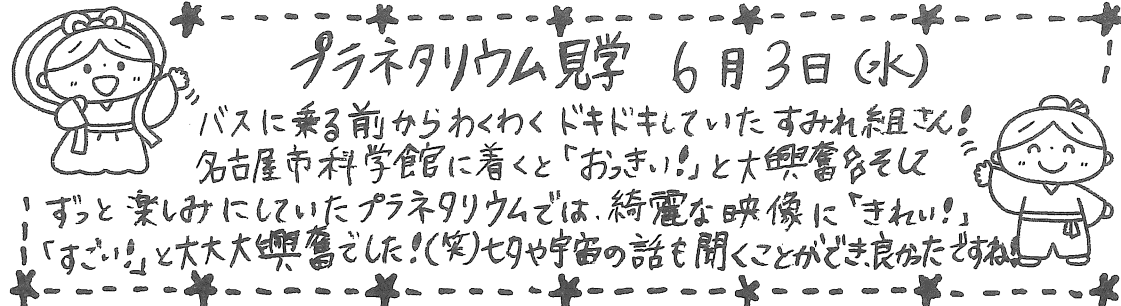 プラネタリウム見学 6月3日(水)
バスに乗る前からわくわくドキドキしていたすみれ組さん!
名古屋市科学館に着くと「おっきい!」と大興奮💦そして
ずっと楽しみにしていたプラネタリウムでは、綺麗な映像に「きれい!」
「すごい!」と大大大興奮でした!(笑)七夕や宇宙の話も聞くことができ、良かったですね!